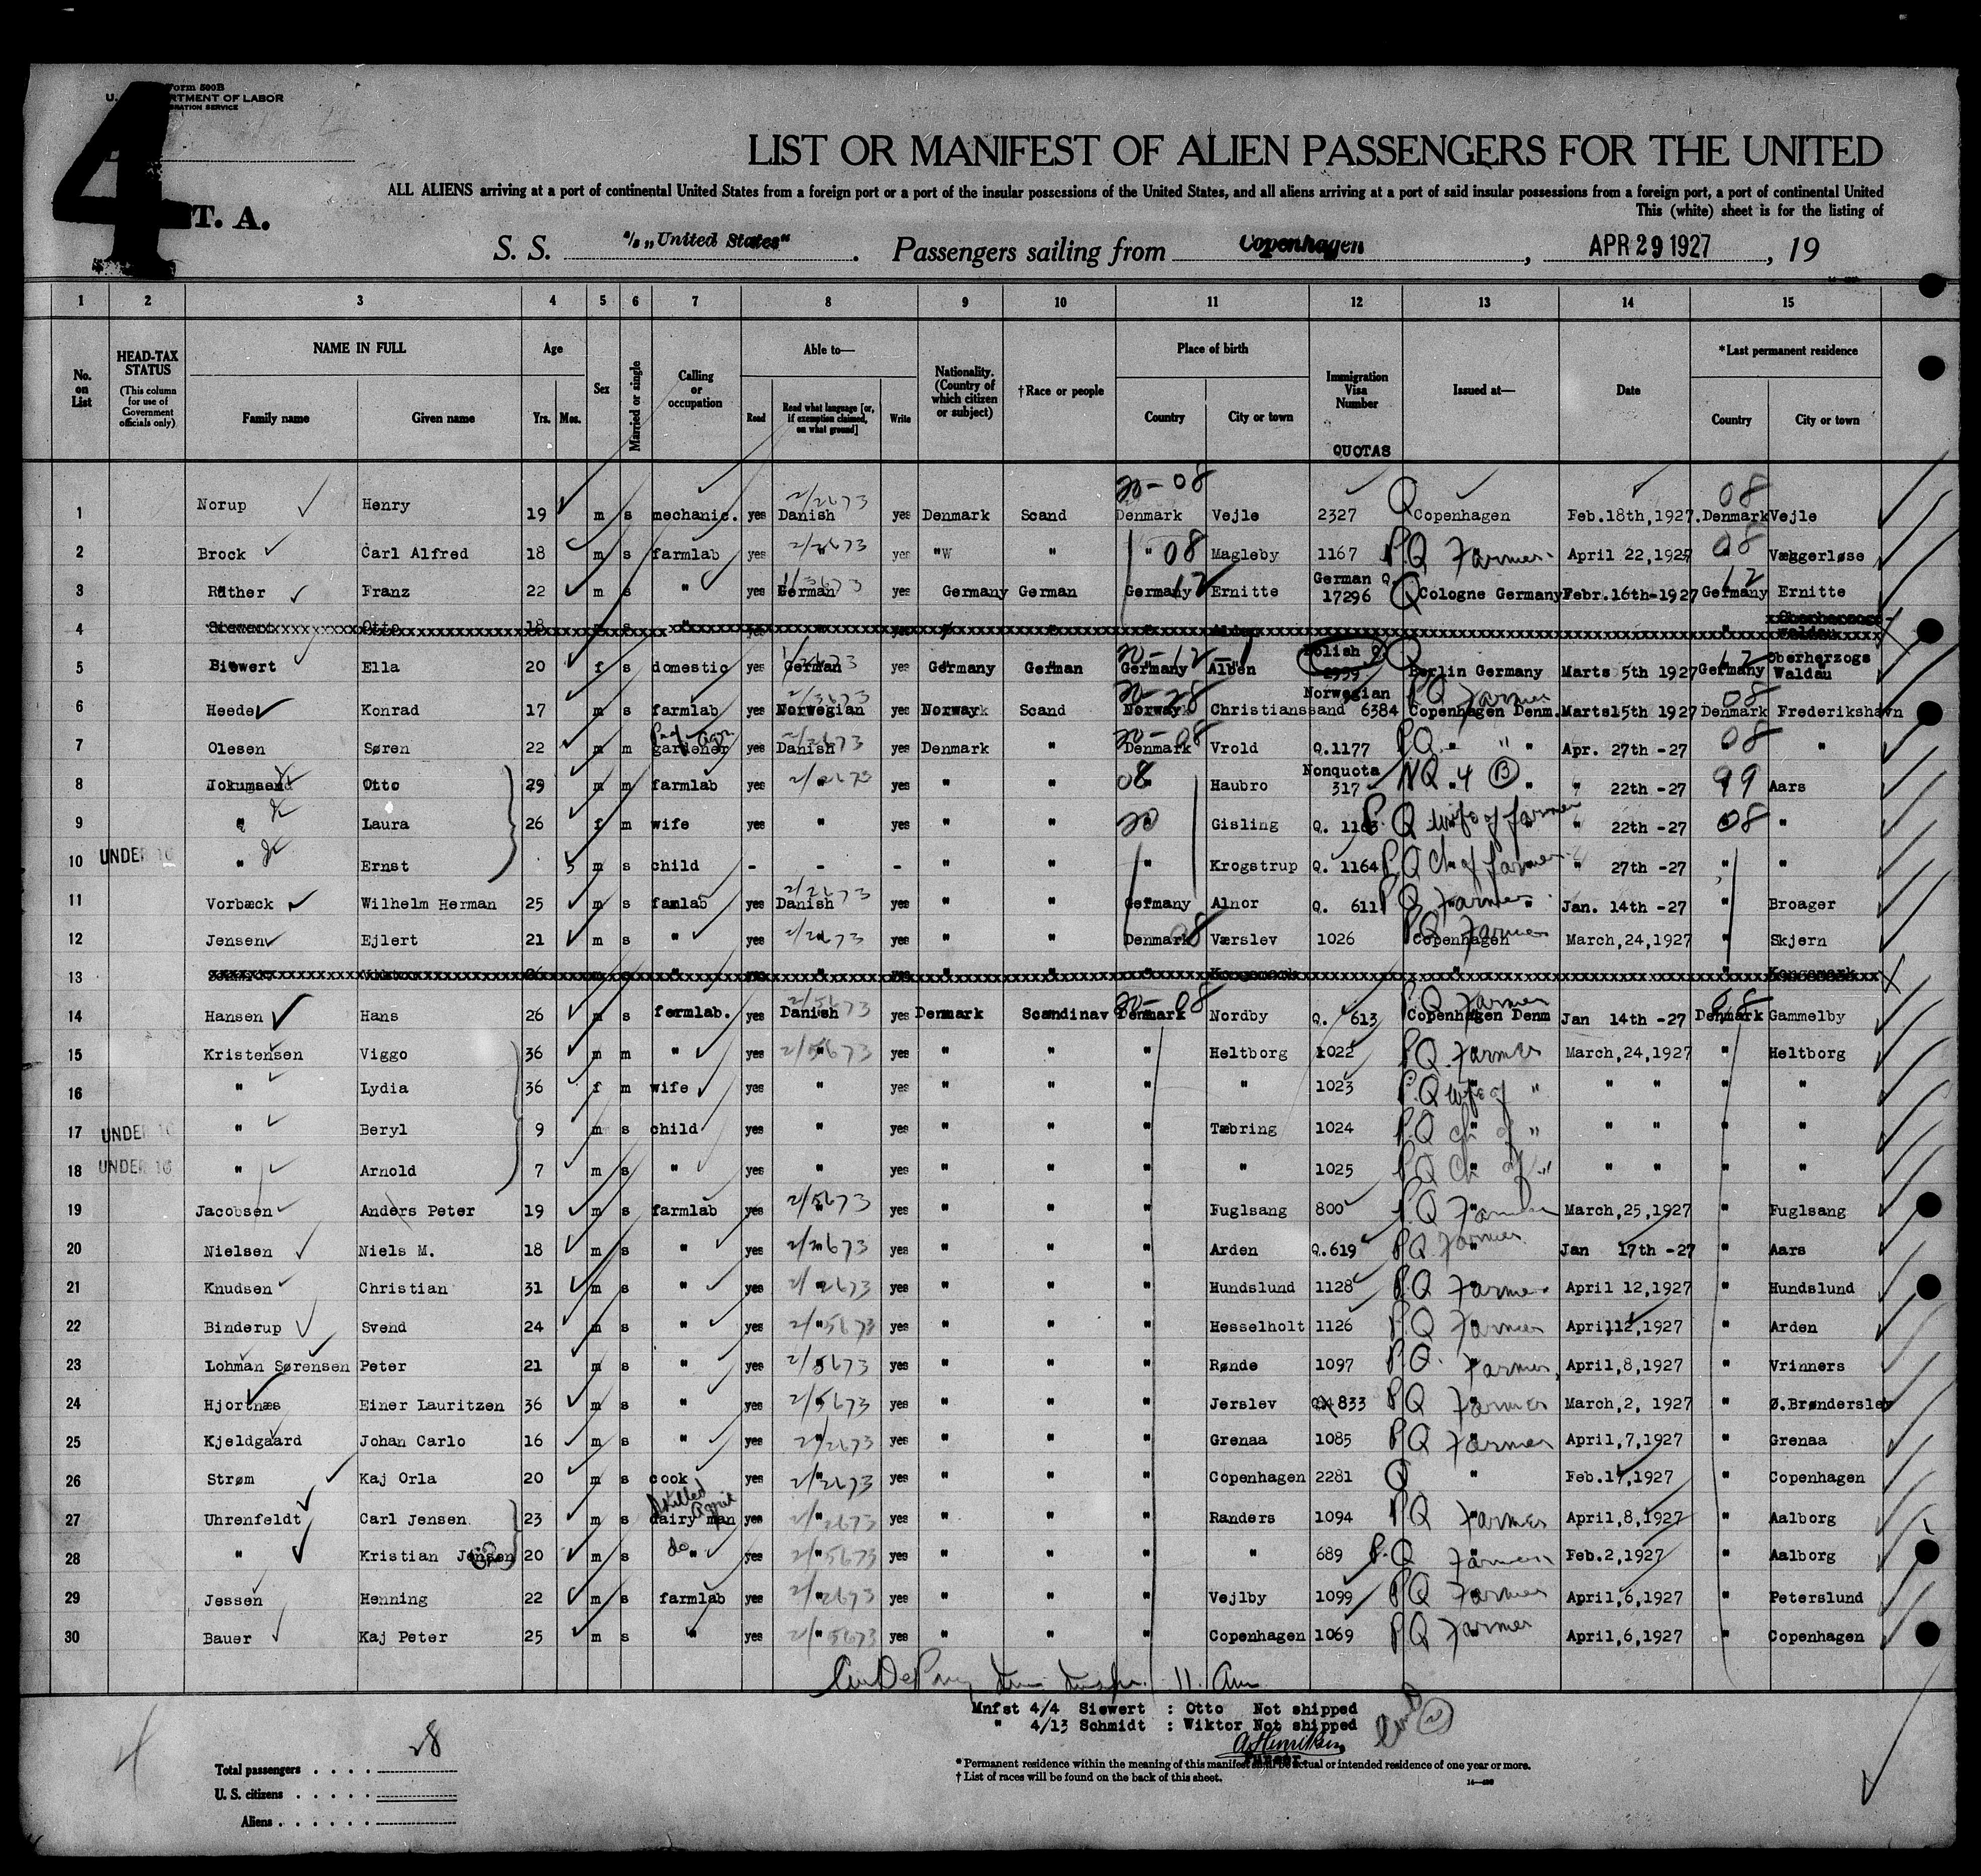 4
Form 500B
U. DEPARTMENT OF LABOR
IMMIGRATION SERVICE
T. A.
LIST OR MANIFEST OF ALIEN PASSENGERS FOR THE UNITED
ALL ALIENS arriving at a port of continental United States from a foreign port or a port of the insular possessions of the United States, and all aliens arriving at a port of said insular possessions from a foreign port, a port of continental United
This (white) sheet is for the listing of
S. S. s/s „United States" . Passengers sailing from Copenhagen , APR 29 1927 , 19
1 2 3 4 5 6 7 8 9 10 11 12 13 14 15
No. on List
HEAD-TAX STATUS (This column for use of Government officials only)
NAME IN FULL
Family name Given name
Age Yrs. Mos.
Sex
Married or single
Calling or occupation
Able to—
Read Read what language [or, if exemption claimed, on what ground] Write
Nationality. (Country of which citizen or subject)
†Race or people
Place of birth
Country City or town
Immigration Visa Number
QUOTAS
Issued at—
Date
*Last permanent residence
Country City or town
20-08 08
1 Norup Henry 19 m s mechanic. yes Danish yes Denmark Scand Denmark Vejle 2327 Q Copenhagen Feb.18th,1927. Denmark Vejle
2 Brock Carl Alfred 18 m s farmlab yes " yes "W " " 08 Magleby 1167 PQ Farmer April 22,1927 08 Væggerløse
3 Räther Franz 22 m s " yes German yes Germany German Germany 12 Ernitte German Q. 17296 Q Cologne Germany Febr.16th-1927 Germany 12 Ernitte
4 Siewert Otto 18 m s " yes " yes " " " Alden " Oberherzogs waldau
5 Siewert Ella 20 f s domestic yes German yes Germany German Germany 20-12 Alben Polish Q 2959 Q Berlin Germany Marts 5th 1927 Germany 12 Oberherzogs Waldau
6 Heede Konrad 17 m s farmlab yes Norwegian yes Norway Scand Norway 20-28 Christianssand Norwegian 6384 PQ Farmer Copenhagen Denm. Marts15th 1927 Denmark 08 Frederikshavn
7 Olesen Søren 22 m m gardener yes Danish yes Denmark " Denmark 20-08 Vrold Q.1177 PQ " " Apr. 27th -27 08 "
8 Jokumsend Otto 29 m m farmlab yes " yes " " 08 Haubro Nonquota 317 NQ 4 B " " 22th -27 99 Aars
9 " Laura 26 f m wife yes " yes " " 20 Gisling Q. 1163 PQ Wife of farmer " 22th -27 08 "
10 UNDER 16 " Ernst 5 m s child - - - " " " Krogstrup Q. 1164 PQ Ch of farmer " 27th -27 " "
11 Vorbæck Wilhelm Herman 25 m s famlab yes Danish yes " " Germany Alnor Q. 611 PQ Farmer " Jan. 14th -27 " Broager
12 Jensen Ejlert 21 m s " yes " yes " " Denmark 08 Værslev 1026 PQ Farmer Copenhagen March,24,1927 " Skjern
13 Schmidt Viktor 26 m s " yes " yes " " " Kongsmark " " Kongsmark
14 Hansen Hans 26 m s fermlab. yes Danish yes Denmark Scandinav Denmark 20-08 Nordby Q. 613 PQ Farmer Copenhagen Denm Jan 14th -27 Denmark 08 Gammelby
15 Kristensen Viggo 36 m m " yes " yes " " " Heltborg 1022 PQ. Farmer March,24,1927 " Heltborg
16 " Lydia 36 f m wife yes " yes " " " " 1023 P.Q Wife of " " " " "
17 UNDER 16 " Beryl 9 m s child yes " yes " " " Tæbring 1024 P.Q ch of " " " " "
18 UNDER 16 " Arnold 7 m s " yes " yes " " " " 1025 PQ Ch of " " " " "
19 Jacobsen Anders Peter 19 m s farmlab yes " yes " " " Fuglsang 800 P.Q Farmer March,25,1927 " Fuglsang
20 Nielsen Niels M. 18 m s " yes " yes " " " Arden Q.619 PQ Farmer Jan 17th -27 " Aars
21 Knudsen Christian 31 m s " yes " yes " " " Hundslund 1128 PQ Farmer April 12,1927 " Hundslund
22 Binderup Svend 24 m s " yes " yes " " " Hesselholt 1126 P.Q Farmer April12,1927 " Arden
23 Lohman Sørensen Peter 21 m s " yes " yes " " " Rønde 1097 P.Q. Farmer April,8,1927 " Vrinners
24 Hjortnæs Einer Lauritzen 36 m s " yes " yes " " " Jerslev 833 PQ Farmer March,2, 1927 " Ø.Brønderslev
25 Kjeldgaard Johan Carlo 16 m s " yes " yes " " " Grenaa 1085 PQ Farmer April,7,1927 " Grenaa
26 Strøm Kaj Orla 20 m s cook yes " yes " " " Copenhagen 2281 Q " Feb.17,1927 " Copenhagen
27 Uhrenfeldt Carl Jensen 23 m s Skilled Agri dairy man yes " yes " " " Randers 1094 PQ Farmer April,8,1927 " Aalborg
28 " Kristian Jensen 20 m s do " yes " yes " " " " 689 P.Q Farmer Feb.2,1927 " Aalborg
29 Jessen Henning 22 m s farmlab yes " yes " " " Vejlby 1099 PQ Farmer April,6,1927 " Peterslund
30 Bauer Kaj Peter 25 m s " yes " yes " " " Copenhagen 1069 PQ Farmer April,6,1927 " Copenhagen
Mnfst 4/4 Siewert : Otto Not shipped
" 4/13 Schmidt : Wiktor Not shipped
Purser.
4
28
Total passengers . . . .
U. S. citizens . . . . .
Aliens . . . . . .
* Permanent residence within the meaning of this manifest shall be actual or intended residence of one year or more.
† List of races will be found on the back of this sheet.